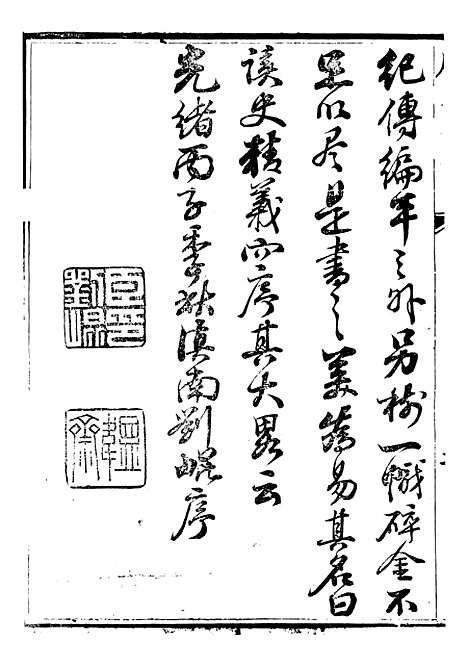 紀傳編年之外另樹一幟碎金不
足以尽是書之美為易其名曰
讀史精義而序其大畧云
光緒丙子季秋滇南劉崐序